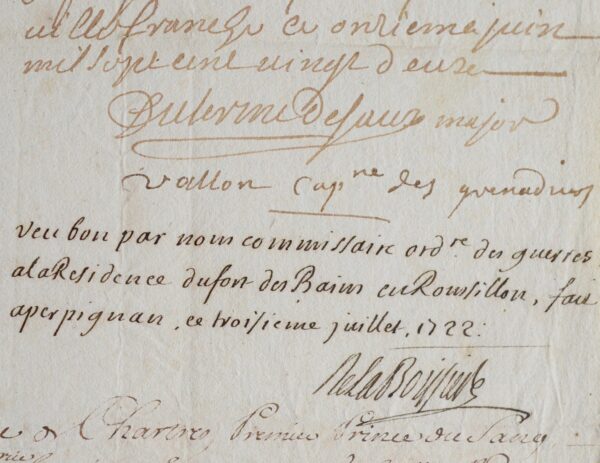 villefranche ce onziéme juin
mil sept cent vingt deux
major
vallon capne des grenadiers
veu bon par nous commissaire ordre des guerres
a la Residence du fort des Bains en Roussillon, fait
a perpignan, ce troisieme juillet. 1722.
De la Boissiere
de Chartres Premier Prince du Sang